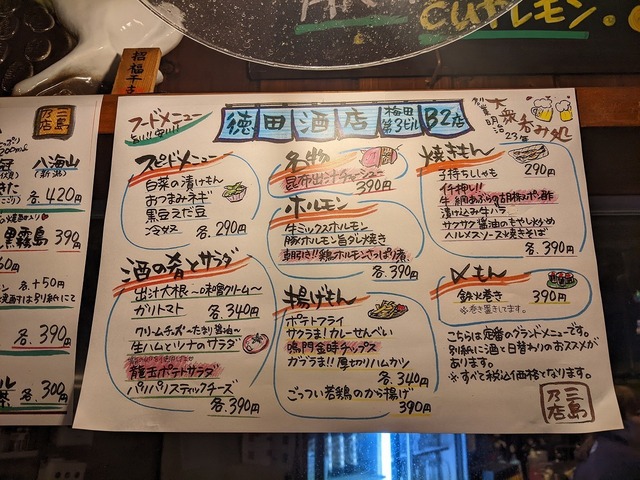 招福千
cuレモン・
三島乃店
八海山
(新潟)
各.420
黒霧島 390円
+50円
各.390
各.300
フードメニュー
徳田酒店 梅田第3ビル B2店
創業明治23年
大衆呑み処
スピードメニュー
白菜の漬けもん
おつまみネギ
黒豆えだ豆
冷奴 各.290円
酒の肴とサラダ
出汁大根 〜味噌クリーム〜
ガリトマト 各.340円
クリームチーズ 〜たまり醤油〜
生ハムとツナのサラダ
龍玉ポテトサラダ
パリパリスティックチーズ
各.390円
名物
昆布出汁チャーシュー
390円
ホルモン
牛ミックスホルモン
豚ホルモン旨ダレ焼き
朝引き!!鶏ホルモンさっぱり漬
各.390円
揚げもん
ポテトフライ
サクうま!カレーせんべい
鳴門金時チップス
ガブうま!!厚切りハムカツ
各.340円
ごっつい若鶏のから揚げ
390円
焼きもん
子持ちししゃも 290円
イチ押し!!
牛網あぶら 旬胡椒ポン酢
漬け込み牛ハラ
サクサク醤油のもやし炒め
ヘルメスソース焼きそば
各.390円
〆もん
鉄火巻き 390円
※巻き置きしてます。
こちらは定番のグランドメニューです。
別紙に酒と日替わりのおススメが
あります。
※すべて税込価格となります。
三島乃店